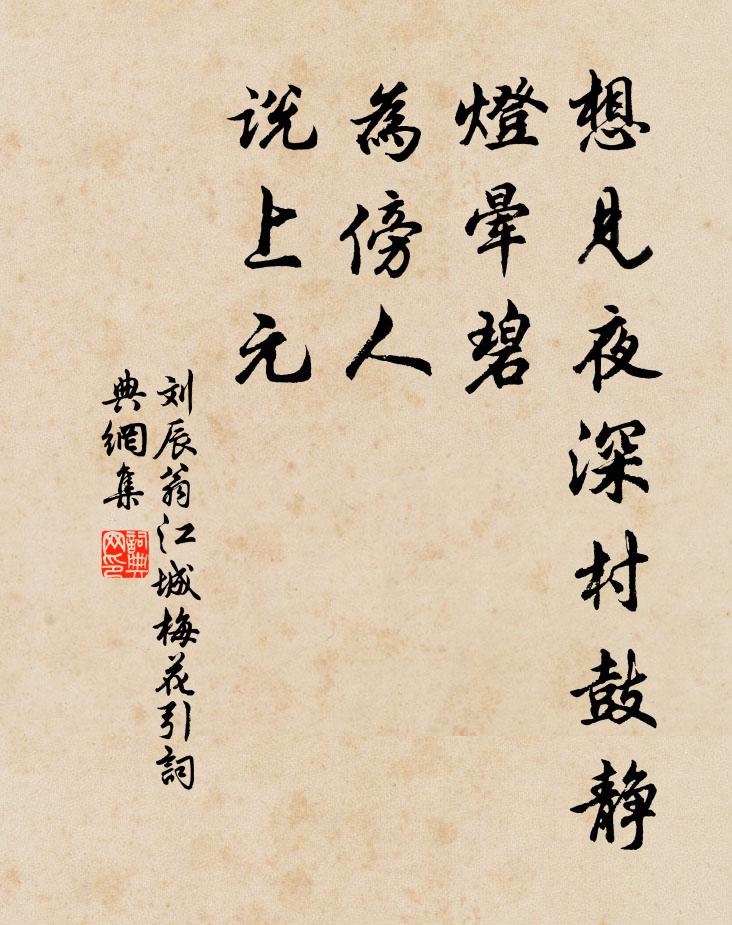 想見夜深村鼓静
燈暈碧
為傍人
説上元
刘辰翁江城梅花引詞
典網集
詞典网印